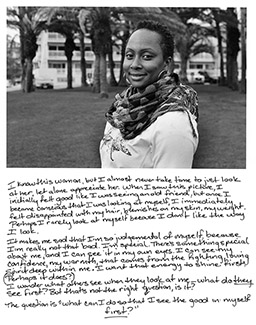 I know this woman, but I almost never take time to just look
at her, let alone appreciate her. When I saw this picture, I
initially felt good like I was seeing an old friend, but once I
became conscious that I was looking at myself, I immediately
felt disappointed with my hair, blemishes on my skin, my weight.
Perhaps I rarely look at myself because I don't like the way
I look.
It makes me sad that I'm so judgemental of myself, because
I'm really not that bad. I'm special. There's something special
about me, and I can see it in my own eyes. I can see my
confidence, my warmth, that comes from the fighting, loving
spirit deep within me. I want that energy to shine first!
(Perhaps it does?)
I wonder what others see when they look at me... what do they
see first? But that's not the right question, is it?
The question is "what can I do so that I see the good in myself
first?"